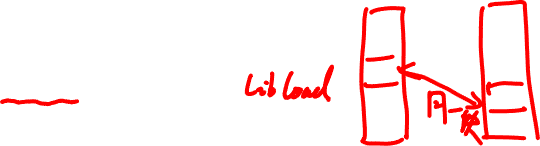 Lib Load
同一块